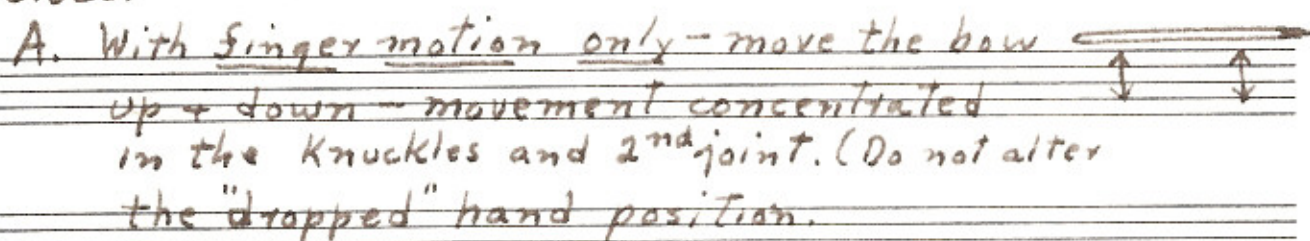 A. With finger motion only - move the bow
up + down - movement concentrated
in the Knuckles and 2nd joint. (Do not alter
the "dropped" hand position.